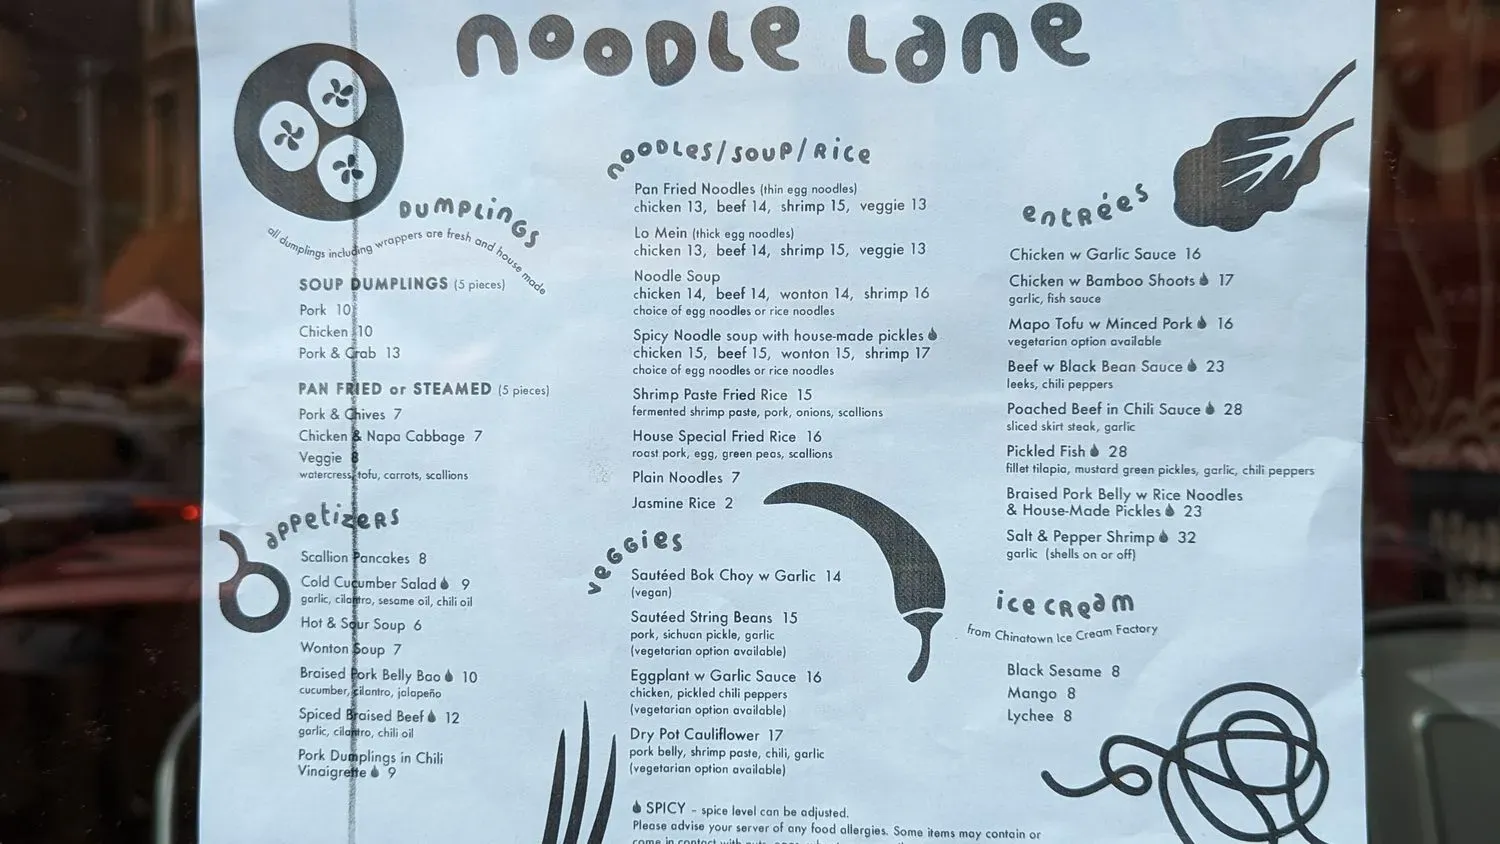 NOODLE LANE
DUMPLINGS
all dumplings including wrappers are fresh and house made
SOUP DUMPLINGS (5 pieces)
Pork 10
Chicken 10
Pork & Crab 13
PAN FRIED or STEAMED (5 pieces)
Pork & Chives 7
Chicken & Napa Cabbage 7
Veggie 8
watercress, tofu, carrots, scallions
appetizers
Scallion Pancakes 8
Cold Cucumber Salad 9
garlic, cilantro, sesame oil, chili oil
Hot & Sour Soup 6
Wonton Soup 7
Braised Pork Belly Bao 10
cucumber, cilantro, jalapeño
Spiced Braised Beef 12
garlic, cilantro, chili oil
Pork Dumplings in Chili
Vinaigrette 9
NOODLES/SOUP/RICE
Pan Fried Noodles (thin egg noodles)
chicken 13, beef 14, shrimp 15, veggie 13
Lo Mein (thick egg noodles)
chicken 13, beef 14, shrimp 15, veggie 13
Noodle Soup
chicken 14, beef 14, wonton 14, shrimp 16
choice of egg noodles or rice noodles
Spicy Noodle soup with house-made pickles
chicken 15, beef 15, wonton 15, shrimp 17
choice of egg noodles or rice noodles
Shrimp Paste Fried Rice 15
fermented shrimp paste, pork, onions, scallions
House Special Fried Rice 16
roast pork, egg, green peas, scallions
Plain Noodles 7
Jasmine Rice 2
veggies
Sautéed Bok Choy w Garlic 14
(vegan)
Sautéed String Beans 15
pork, sichuan pickle, garlic
(vegetarian option available)
Eggplant w Garlic Sauce 16
chicken, pickled chili peppers
(vegetarian option available)
Dry Pot Cauliflower 17
pork belly, shrimp paste, chili, garlic
(vegetarian option available)
SPICY – spice level can be adjusted.
Please advise your server of any food allergies. Some items may contain or
come in contact with
entrées
Chicken w Garlic Sauce 16
Chicken w Bamboo Shoots 17
garlic, fish sauce
Mapo Tofu w Minced Pork 16
vegetarian option available
Beef w Black Bean Sauce 23
leeks, chili peppers
Poached Beef in Chili Sauce 28
sliced skirt steak, garlic
Pickled Fish 28
fillet tilapia, mustard green pickles, garlic, chili peppers
Braised Pork Belly w Rice Noodles
& House-Made Pickles 23
Salt & Pepper Shrimp 32
garlic (shells on or off)
ice cream
from Chinatown Ice Cream Factory
Black Sesame 8
Mango 8
Lychee 8